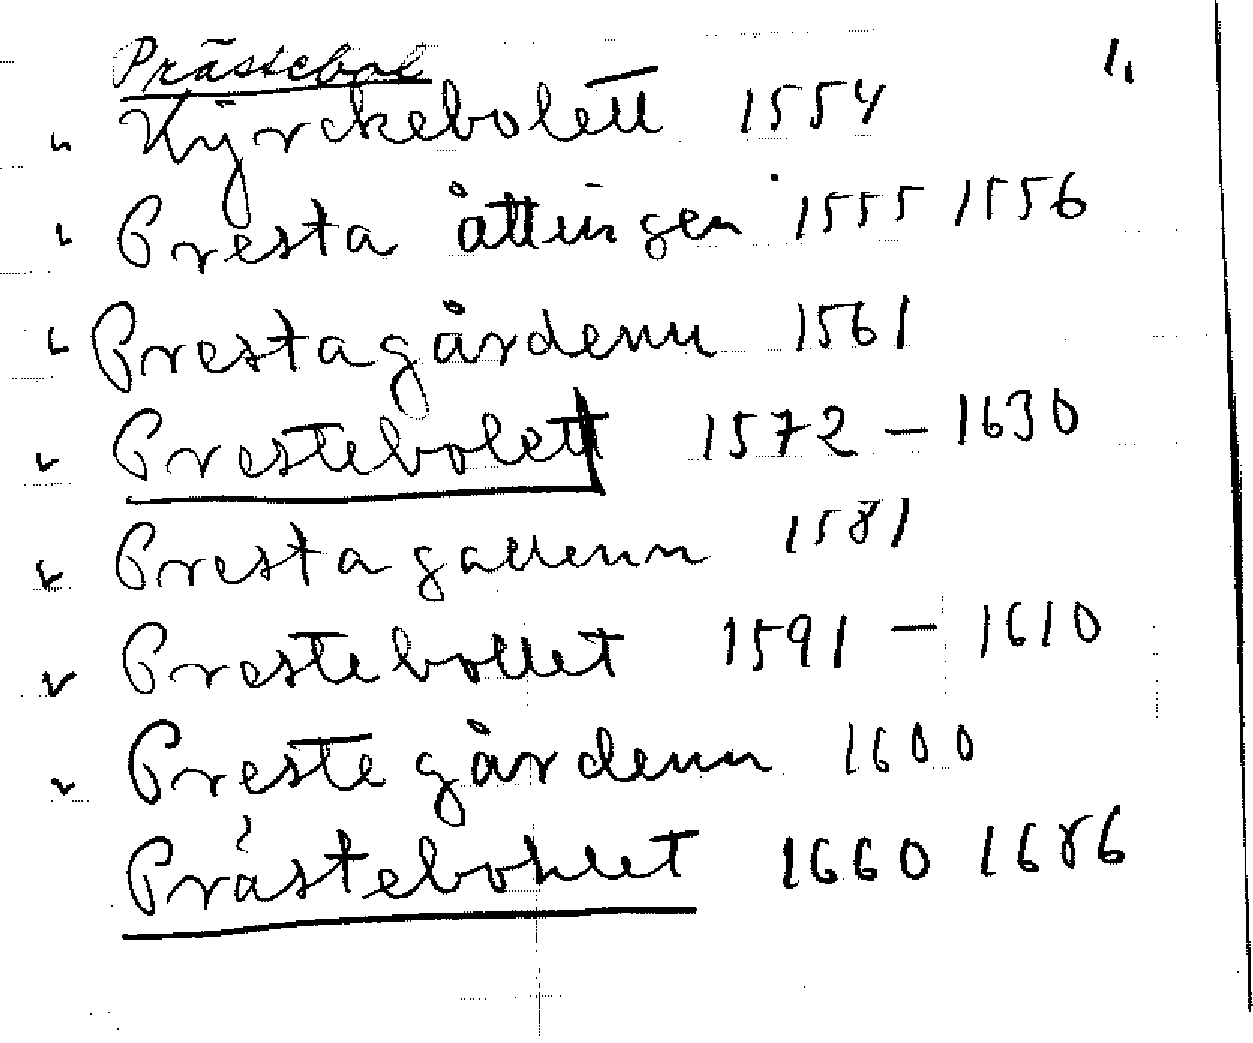 Prästebol 1,
" Kÿrckebolett 1554
" Presta åttingen 1555 1556
" Prestagårdenn 1561
" Prestebolett 1572 – 1630
" Presta gallenn 1581
" Prestebollet 1591 – 1610
" Preste gårdenn 1600
Prästebohlet 1660 1686